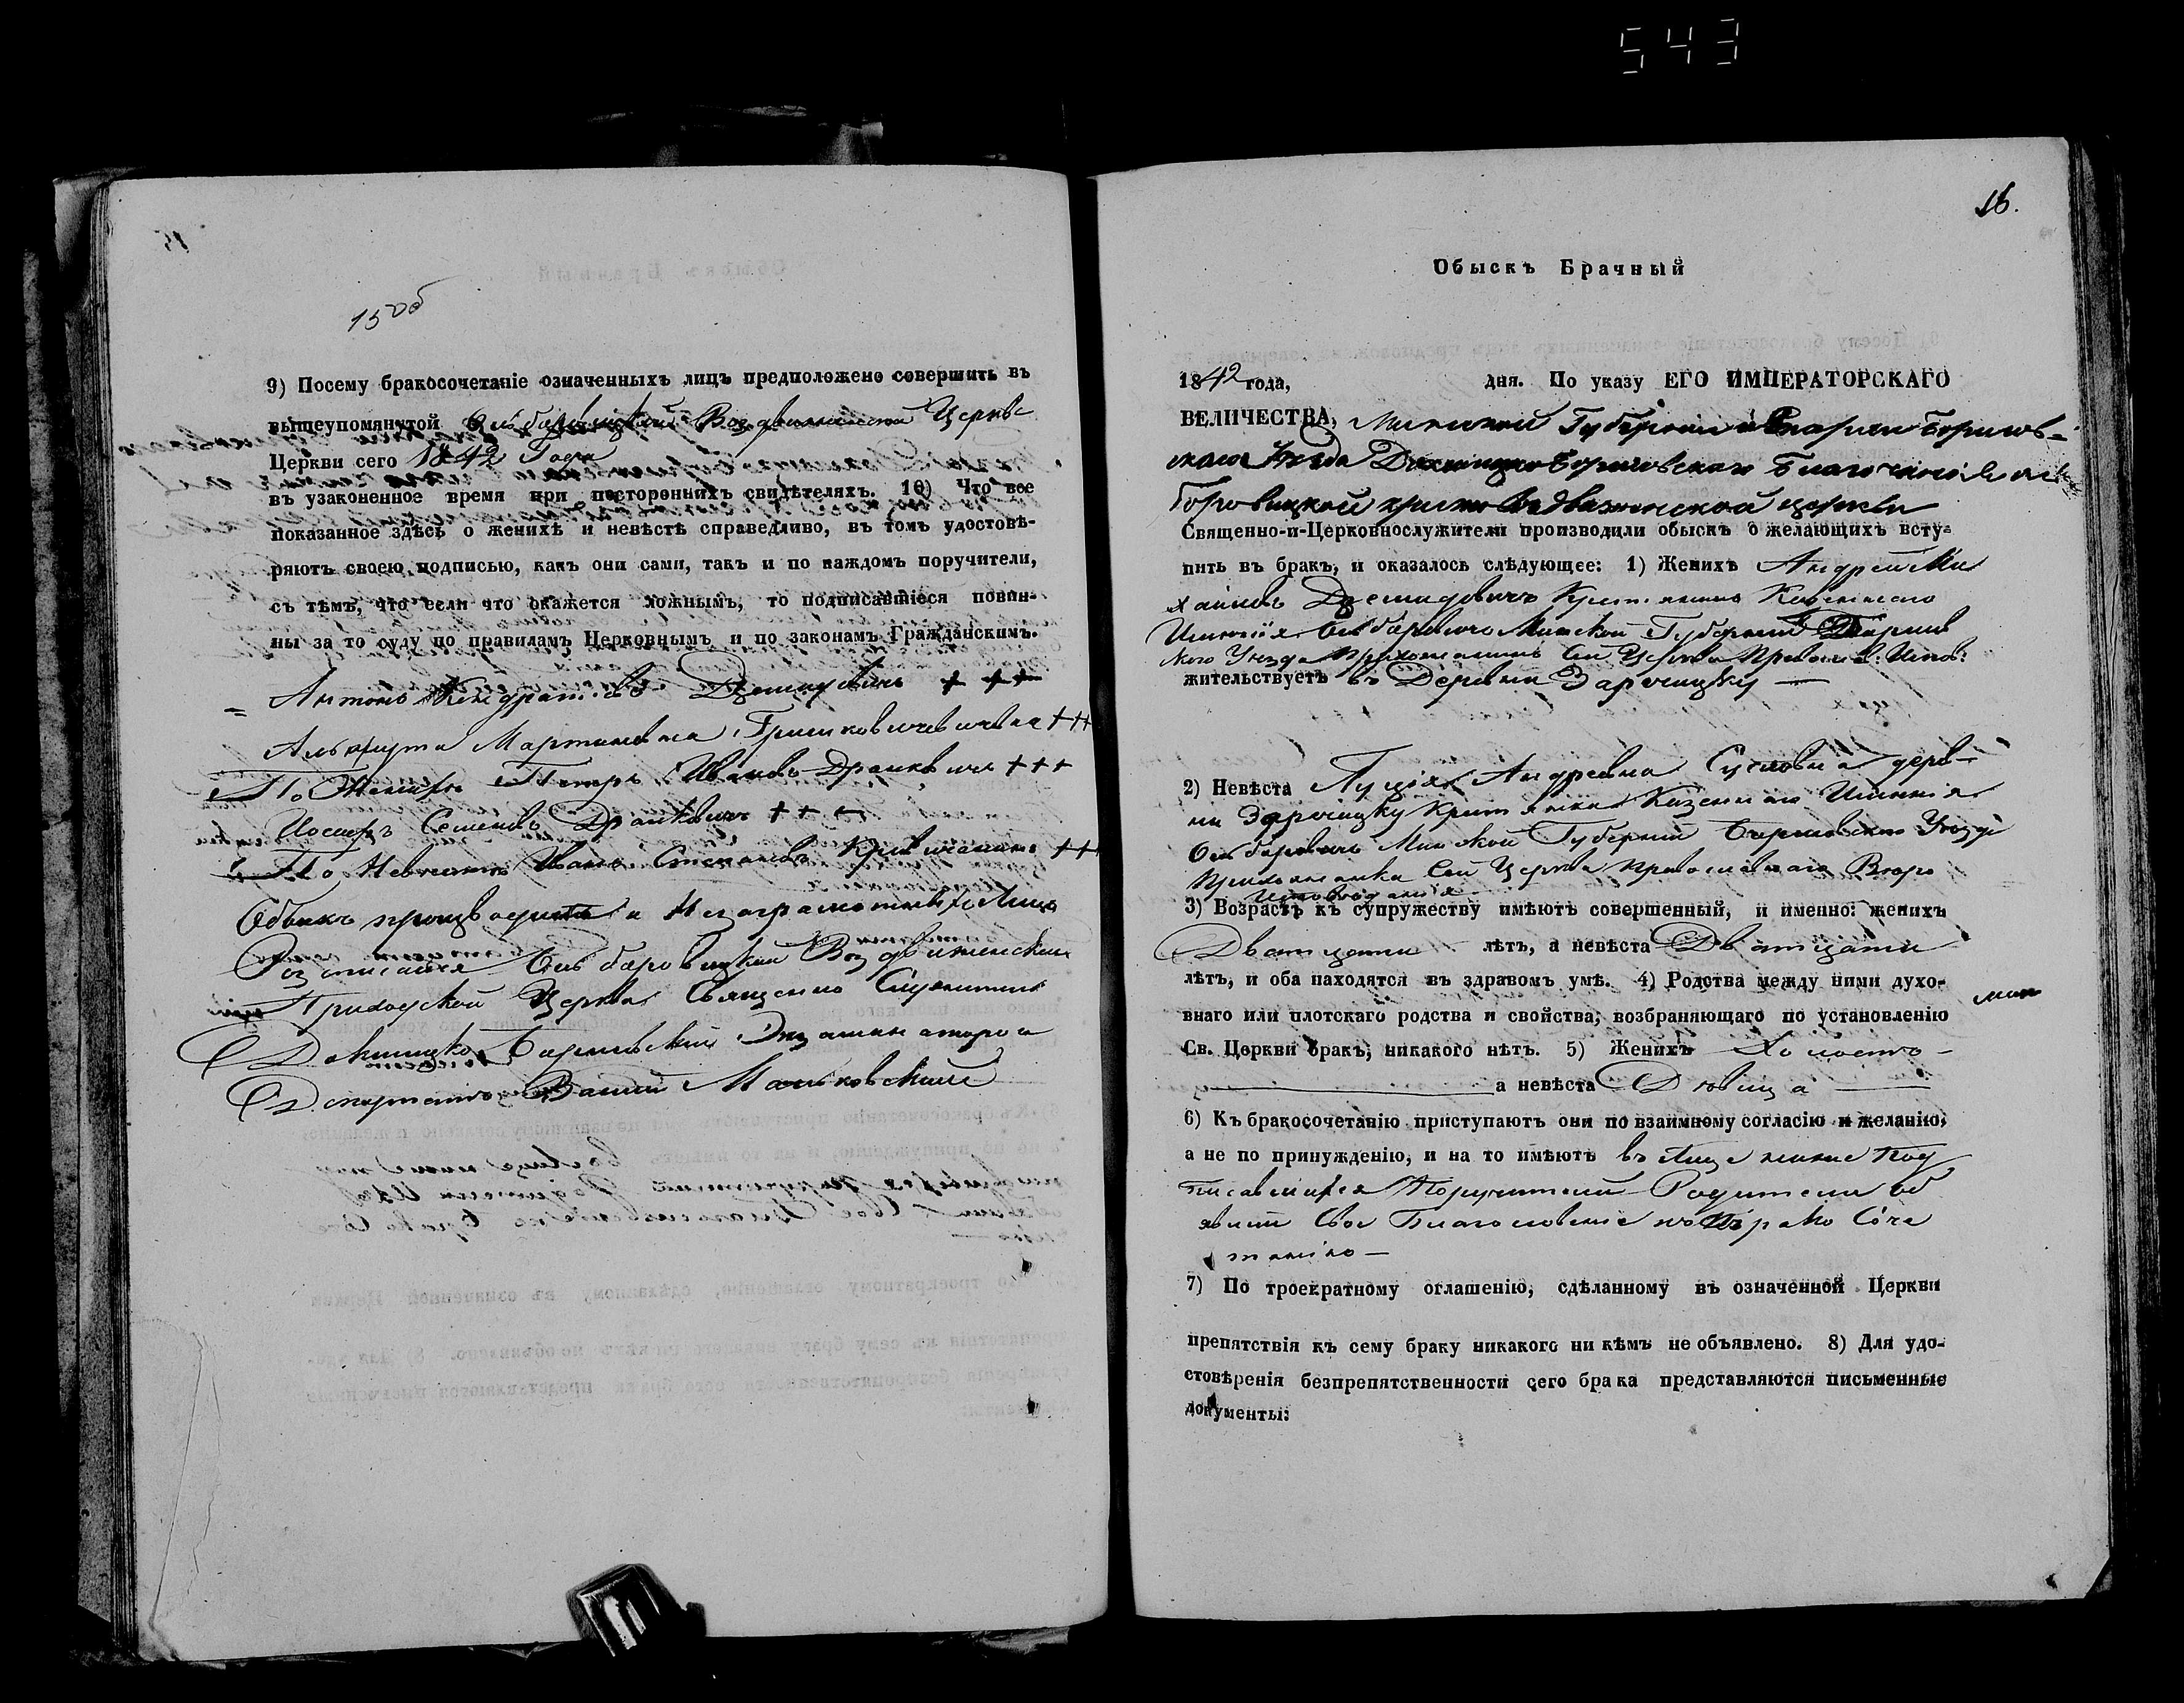 543
15 об
9) Посему бракосочетаніе означенныхъ лицъ предположено совершить въ
вышеупомянутой Ольбаровицкой Воздвиженской Церкве
Церкви сего 1842 Года
въ узаконенное время при постороннихъ свидѣтеляхъ. 10) Что все
показанное здѣсь о женихѣ и невѣстѣ справедливо, въ томъ удостовѣ-
ряютъ своею подписью, какъ они сами, такъ и по каждомъ поручители,
съ тѣмъ, что если что окажется ложнымъ, то подписавшіеся повин-
ны за то суду по правиламъ Церковнымъ и по законамъ Гражданскимъ.
Антонъ Кондратовъ Дземидовичъ + ++
Мартиновна +++
По Женихѣ Петръ Ивановъ Дранкевичъ +++
Иосифъ Семеновъ Дранкевичъ + + +
По Невестѣ Иванъ Степановъ ++
Обыскъ производилъ и Неграмотныхъ Лицъ
Росписался Ольбаровицкой Воздвиженской
Приходской Церкви Священно Служитель
Докшицко Борисовскій
Депутатъ Маньковскій
16.
Обыскъ Брачный
1842 года, дня. По указу ЕГО ИМПЕРАТОРСКАГО
ВЕЛИЧЕСТВА, Минской Губерніи и Епархіи Борисов-
скаго Уезда Докшицко Борисовскаго Благочинія Оль
боровицкой Кресто Воздвиженской церкви
Священно-и-Церковнослужители производили обыскъ о желающихъ всту-
пить въ бракъ, и оказалось слѣдующее: 1) Женихъ Андрей Ми
хайловъ Дземидовичъ Крестьянинъ Казеннаго
Имѣнія Ольбаровичъ Минской Губерніи Борисов
скаго Уезда Прихожанинъ Сей Церкви Православ: Испов:
жительствуетъ въ Деревни Заросицку
2) Невѣста Луція Андреевна Сусловна дерев-
ни Заросицку Крестьянка Казеннаго Имѣнія
Ольбаровичъ Минской Губерніи Борисовскаго Уезда
Прихожанка Сей Церкви Православнаго Веро
Исповеданія
3) Возрастъ къ супружеству имѣютъ совершенный, и именно: женихъ
Дватцати лѣтъ, а невѣста Дватцати
лѣтъ, и оба находятся въ здравомъ умѣ. 4) Родства между ними духо-
внаго или плотскаго родства и свойства, возбраняющаго по установленію
Св. Церкви бракъ, никакого нѣтъ. 5) Женихъ Холостъ
а невѣста Девица
6) Къ бракосочетанію приступаютъ они по взаимному согласію и желанію,
а не по принужденію, и на то имѣютъ въ Лице ниже Под
писавшихся Поручителей Родители об
явили Свое Благословение къ Брако Соче
танію —
7) По троекратному оглашенію, сдѣланному въ означенной Церкви
препятствія къ сему браку никакого ни кѣмъ не объявлено. 8) Для удо-
стовѣренія безпрепятственности сего брака представляются письменные
документы: